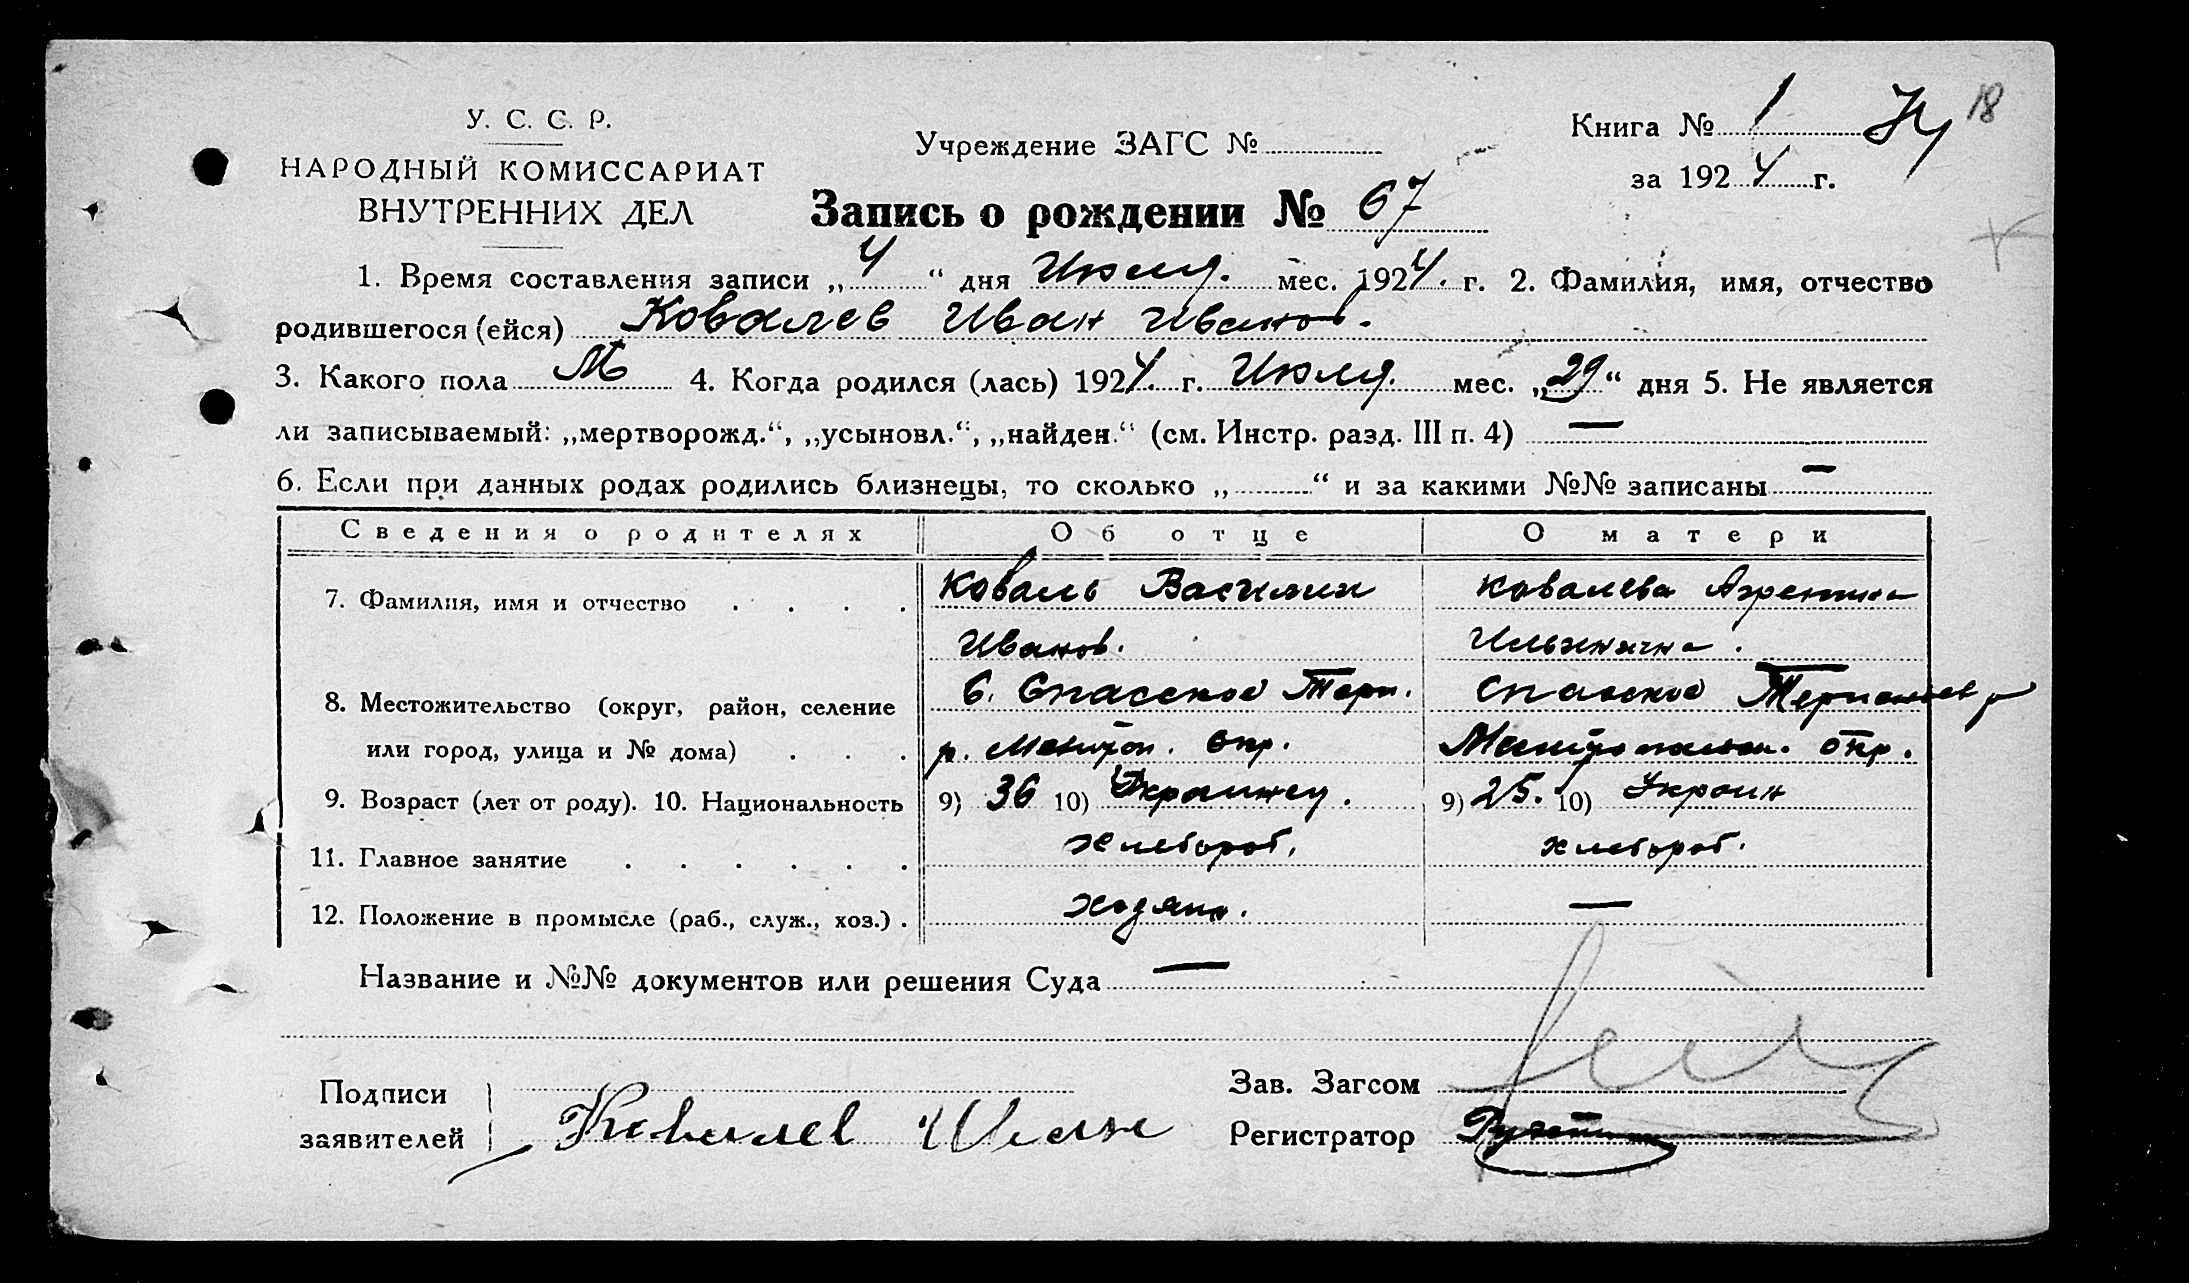 18
У. С. С. Р.
НАРОДНЫЙ КОМИССАРИАТ
ВНУТРЕННИХ ДЕЛ
Учреждение ЗАГС №
Книга № 1
за 1924 г.
Запись о рождении № 67
1. Время составления записи „4“ дня Июля. мес. 1924. г. 2. Фамилия, имя, отчество
родившегося (ейся) Ковалев Иван Иванов.
3. Какого пола М 4. Когда родился (лась) 1924. г. Июля. мес. „29“ дня 5. Не является
ли записываемый: „мертворожд.“, „усыновл.“, „найден.“ (см. Инстр. разд. III п. 4) —
6. Если при данных родах родились близнецы, то сколько „ “ и за какими №№ записаны —
Сведения о родителях Об отце О матери
7. Фамилия, имя и отчество . . . . Коваль Василий Ковалева
Иванов. Ильинична.
8. Местожительство (округ, район, селение С. Спасское Терп. Спаское
или город, улица и № дома) . . . р. Мелитоп. Окр. окр.
9. Возраст (лет от роду). 10. Национальность 9) 36 10) Украинец. 9) 25. 10) Украин
11. Главное занятие . . . . . . хлебороб. хлебороб.
12. Положение в промысле (раб., служ., хоз.) . хозяин. —
Название и №№ документов или решения Суда —
Подписи
заявителей Ковалев Иван
Зав. Загсом
Регистратор